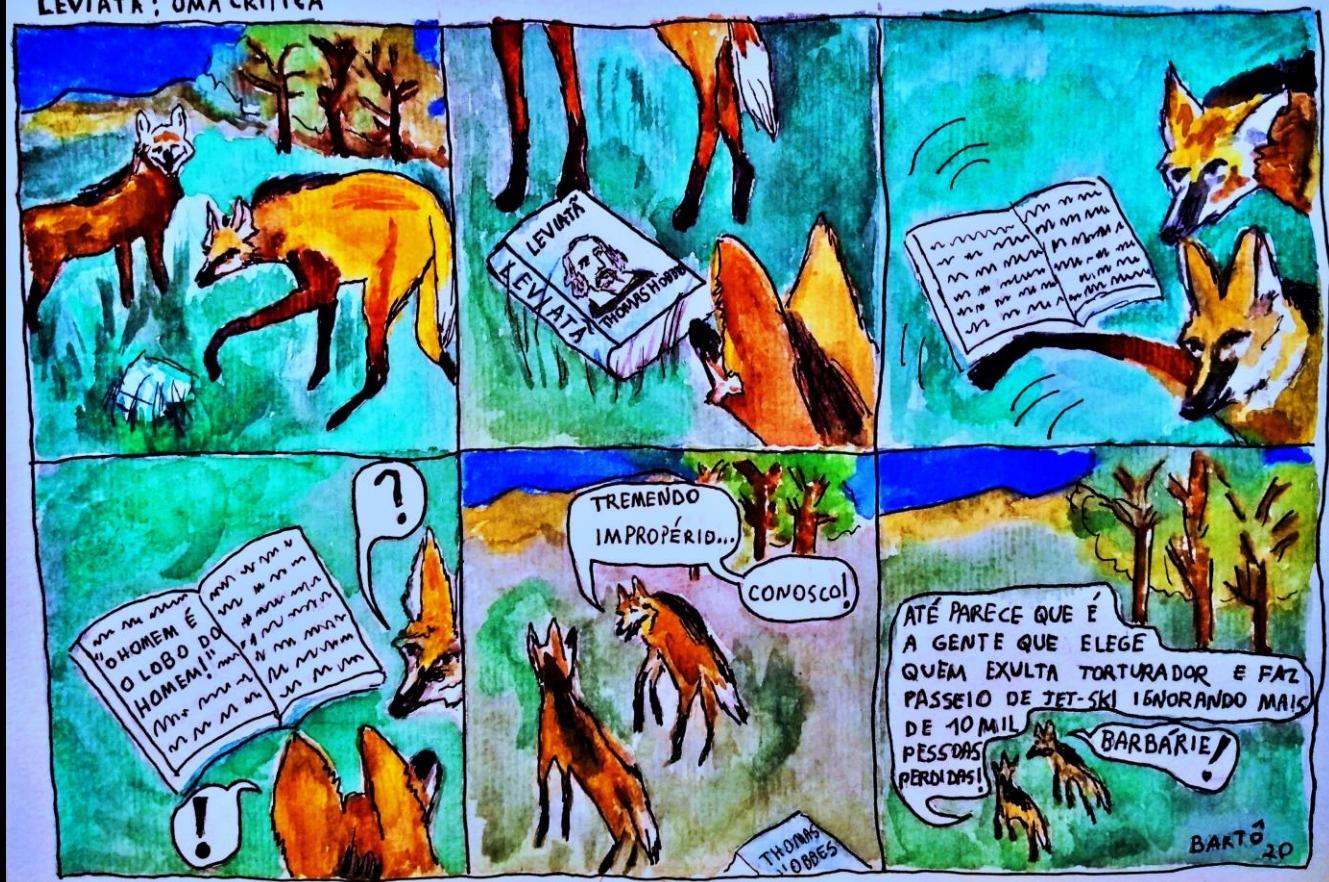 LEVIATÃ: UMA CRÍTICA
LEVIATÃ
THOMAS HOBBE
LEVIATÃ
?
"O HOMEM É
O LOBO DO
HOMEM!"
!
TREMENDO
IMPROPÉRIO...
CONOSCO!
THOMAS
HOBBES
ATÉ PARECE QUE É
A GENTE QUE ELEGE
QUEM EXULTA TORTURADOR E FAZ
PASSEIO DE JET-SKI IGNORANDO MAIS
DE 10 MIL
PESSOAS
PERDIDAS!
BARBÁRIE!
BARTÔ
20